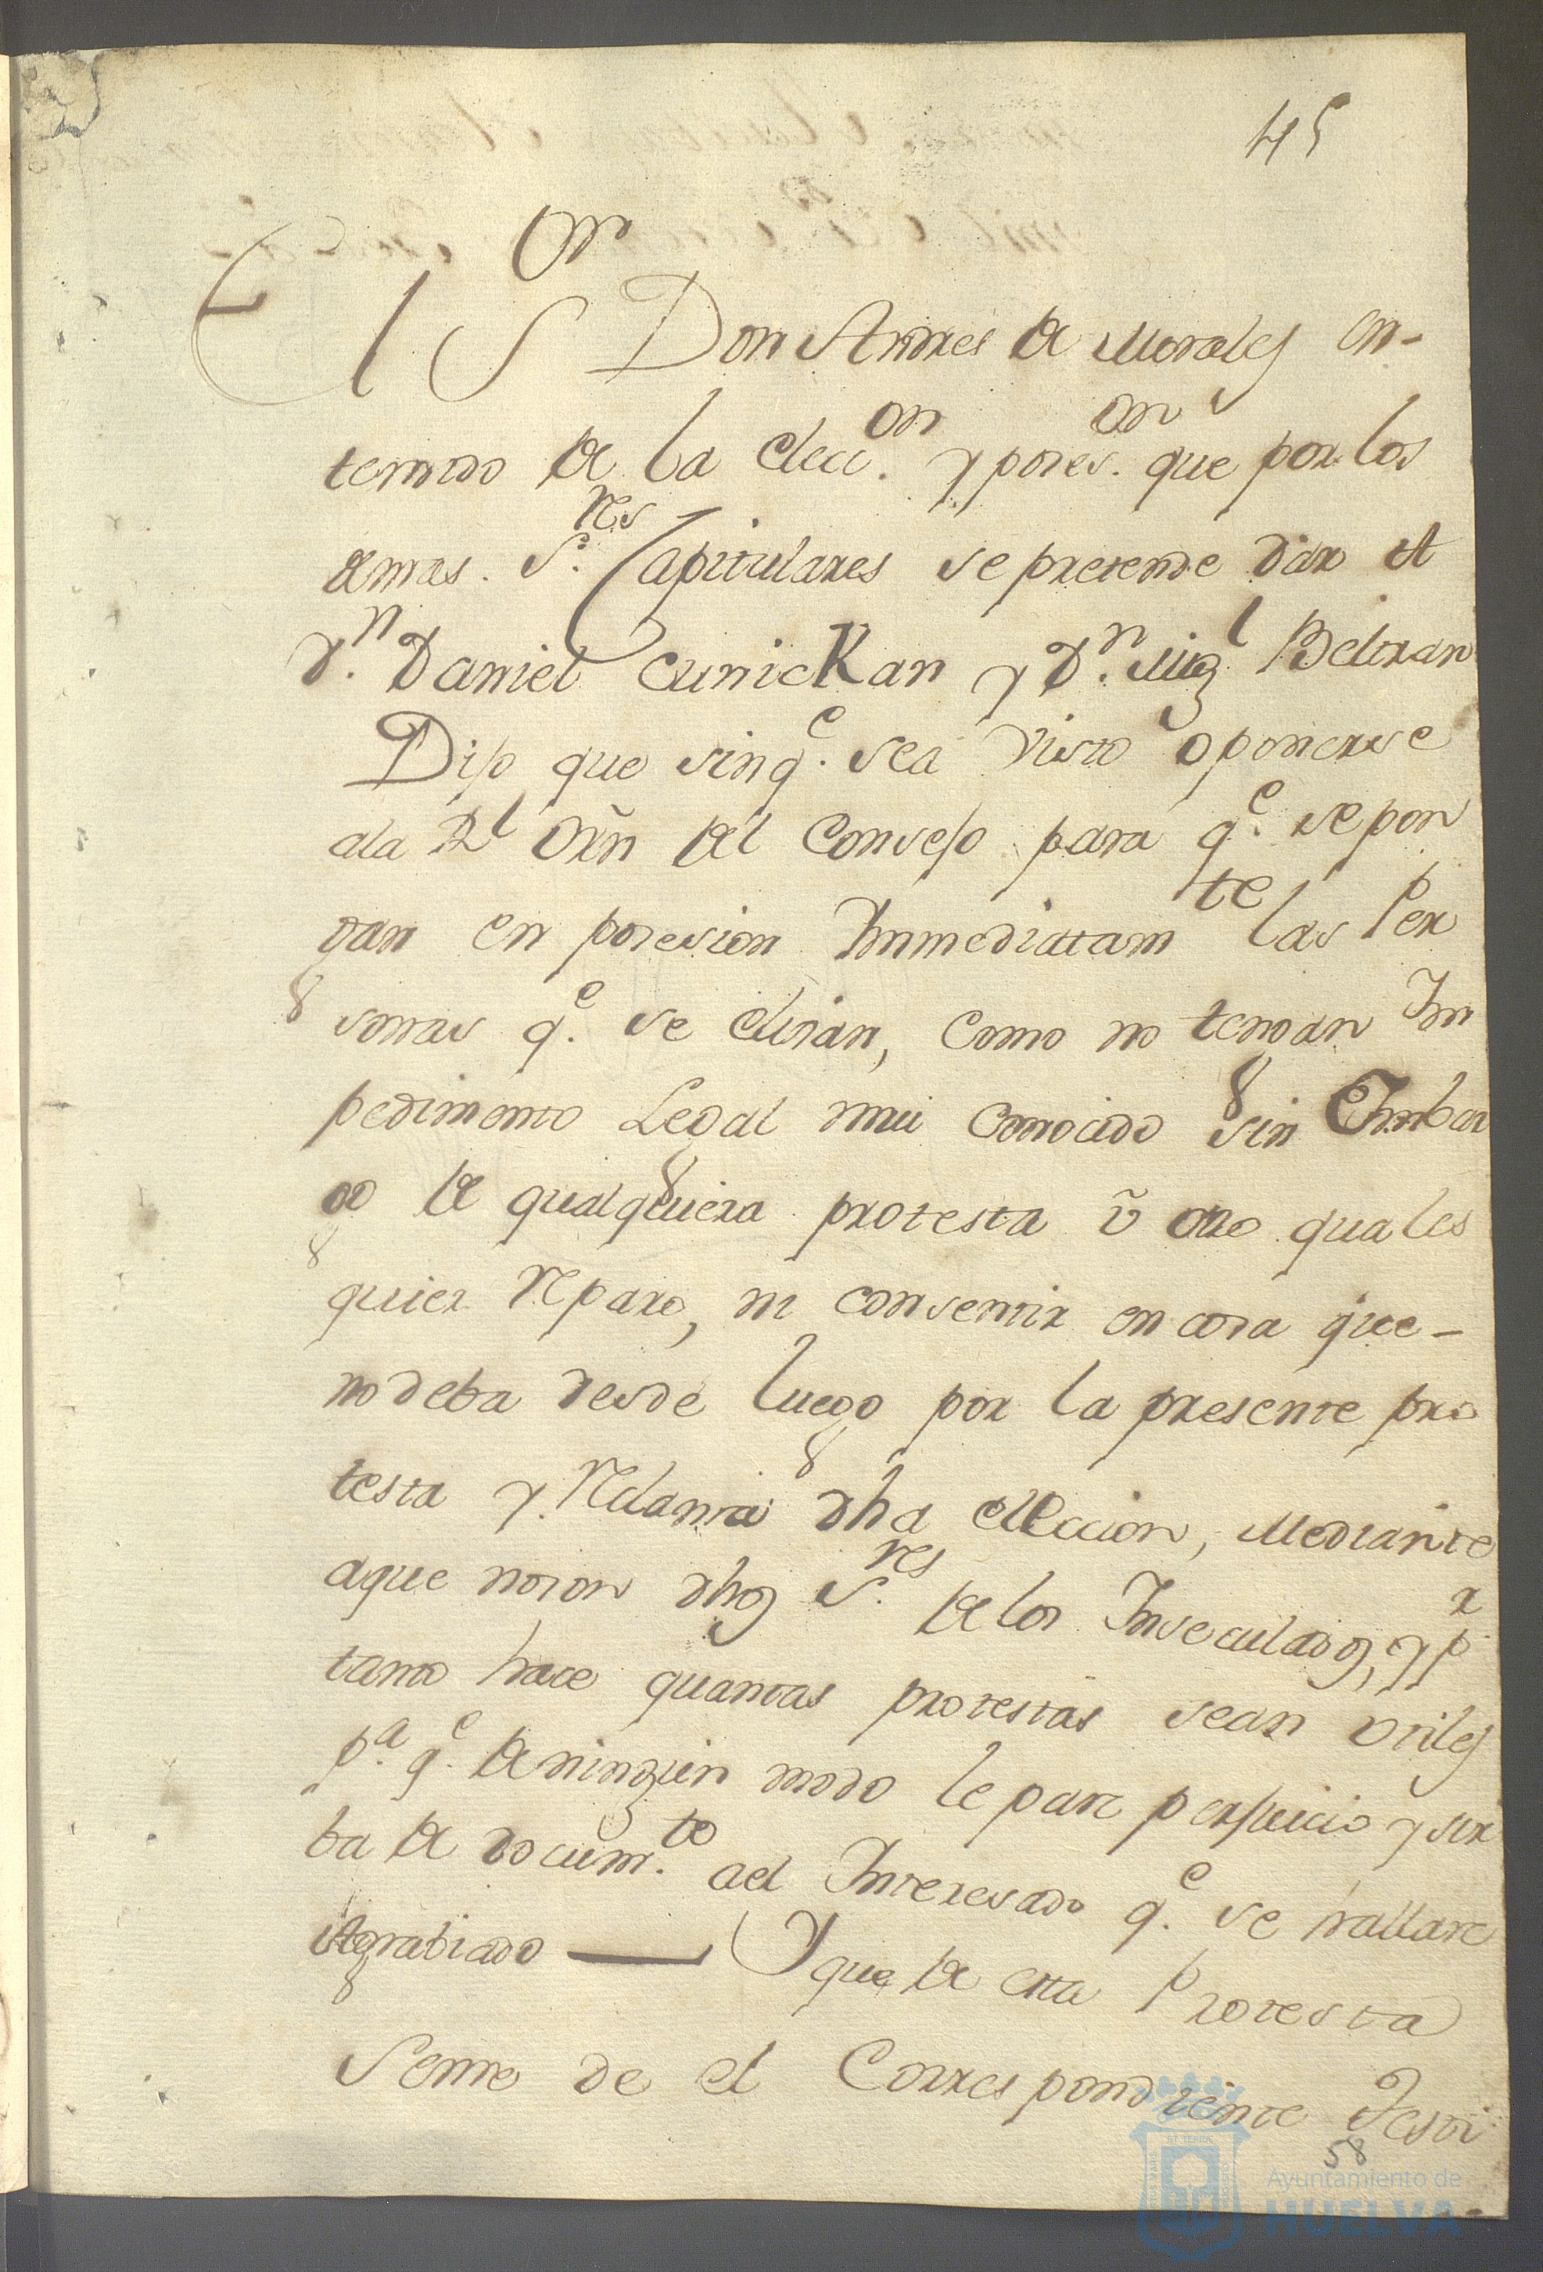 45
El S.or Don Andres de Morales en-
tendido de la elecc.on y poses.on que por los
demas S.res Capitulares se pretende dar a
D.n Daniel CunicKan y D.n Mig.l Beltran
Dijo que sin q.e sea visto oponerse
ala R.l Orñ del Consejo para q.e se pon
gan en posesion Inmediattam.te las Per
sonas q.e se elijan, como no tengan Im
pedimento Legal mui conocido sin Embar
go de qualquiera protesta ũ otro quales
quier Reparo, ni consentir en cosa que-
no deba desde luego por la presente pro
testa y Reclama dha eleccion, Mediante
aque no son dhos S.res de los Inseculados, y p.r
tanto hace quantas protestas sean utiles
p.a q.e de ningun modo le pare perjuicio y sir
ba de docum.to ael Interesado q.e se hallare
Agrabiado — Y que de esta Protesta
Se me de el Correspondiente Testi
58
Ayuntamiento de
HUELVA